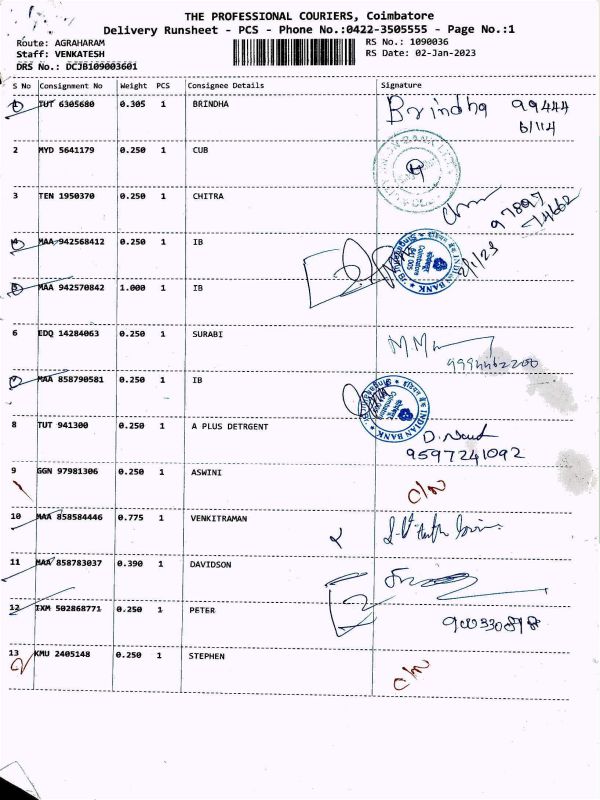 THE PROFESSIONAL COURIERS, Coimbatore
Delivery Runsheet - PCS - Phone No.:0422-3505555 - Page No.:1
Route: AGRAHARAM RS No.: 1090036
Staff: VENKATESH RS Date: 02-Jan-2023
DRS No.: DCJB109003601
S No Consignment No Weight PCS Consignee Details Signature
1 TUT 6305680 0.305 1 BRINDHA Brindha 99444
6/114
2 MYD 5641179 0.250 1 CUB
3 TEN 1950370 0.250 1 CHITRA
97897
74662
4 MAA 942568412 0.250 1 IB
INDIAN BANK
Coimbatore
2/1/23
5 MAA 942570842 1.000 1 IB
6 EDQ 14284063 0.250 1 SURABI
9994462200
7 MAA 858790581 0.250 1 IB
INDIAN BANK
Coimbatore
8 TUT 941300 0.250 1 A PLUS DETRGENT
9597241092
9 GGN 97981306 0.250 1 ASWINI C/N
1
10 MAA 858584446 0.775 1 VENKITRAMAN
11 MAA 858783037 0.390 1 DAVIDSON
12 IXM 502868771 0.250 1 PETER
13 KMU 2405148 0.250 1 STEPHEN C/N
2